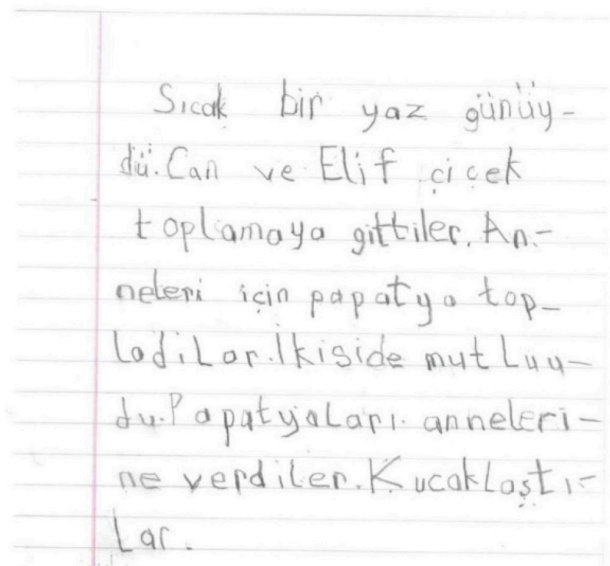 Sıcak bir yaz günüy-
dü. Can ve Elif çiçek
toplamaya gittiler. An-
neleri için papatya top-
ladiLar. Ikiside mutLuu-
du. PapatyaLarı anneleri-
ne verdiler. KucakLaştı-
Lar.